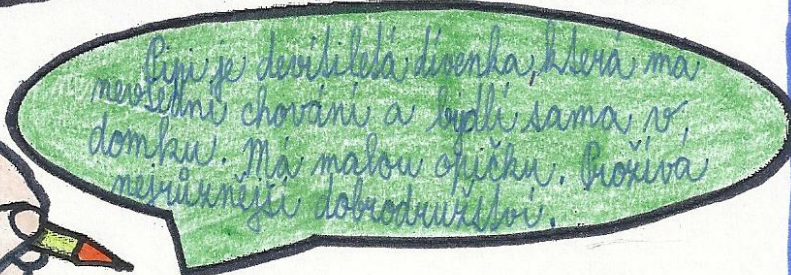 Pipi je devítiletá dívenka, která má
nevšední chování a bydlí sama v
domku. Má malou opičku. Prožívá
nejrůznější dobrodružství.